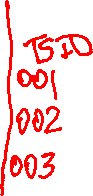 TSID
001
002
003